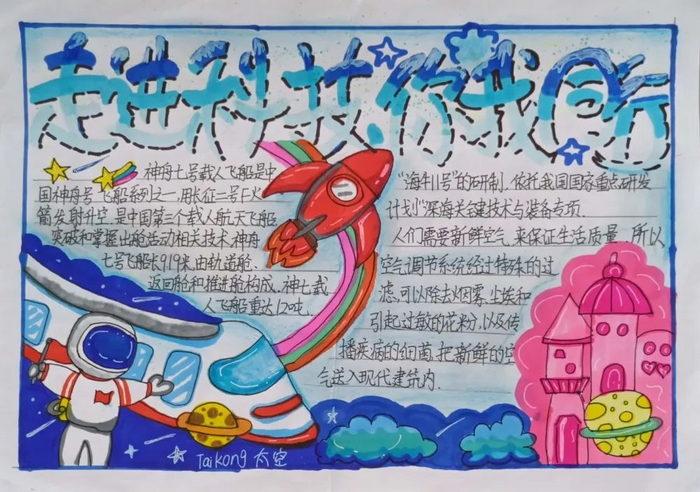 走进科技,你我同行
神舟七号载人飞船是中
国神舟号飞船系列之一,用长征二号F火
箭发射升空.是中国第三个载人航天飞船
突破和掌握出舱活动相关技术.神舟
七号飞船长9.19米,由轨道舱、
返回舱和推进舱构成.神七载
人飞船重达12吨.
"海牛11号"的研制.依托我国国家重点研发
计划"深海关键技术与装备专项.
人们需要新鲜空气.来保证生活质量.所以
空气调节系统经过特殊的过
滤,可以除去烟雾.尘埃和
引起过敏的花粉.以及传
播疾病的细菌.把新鲜的空
气送入现代建筑内.
Taikong 太空